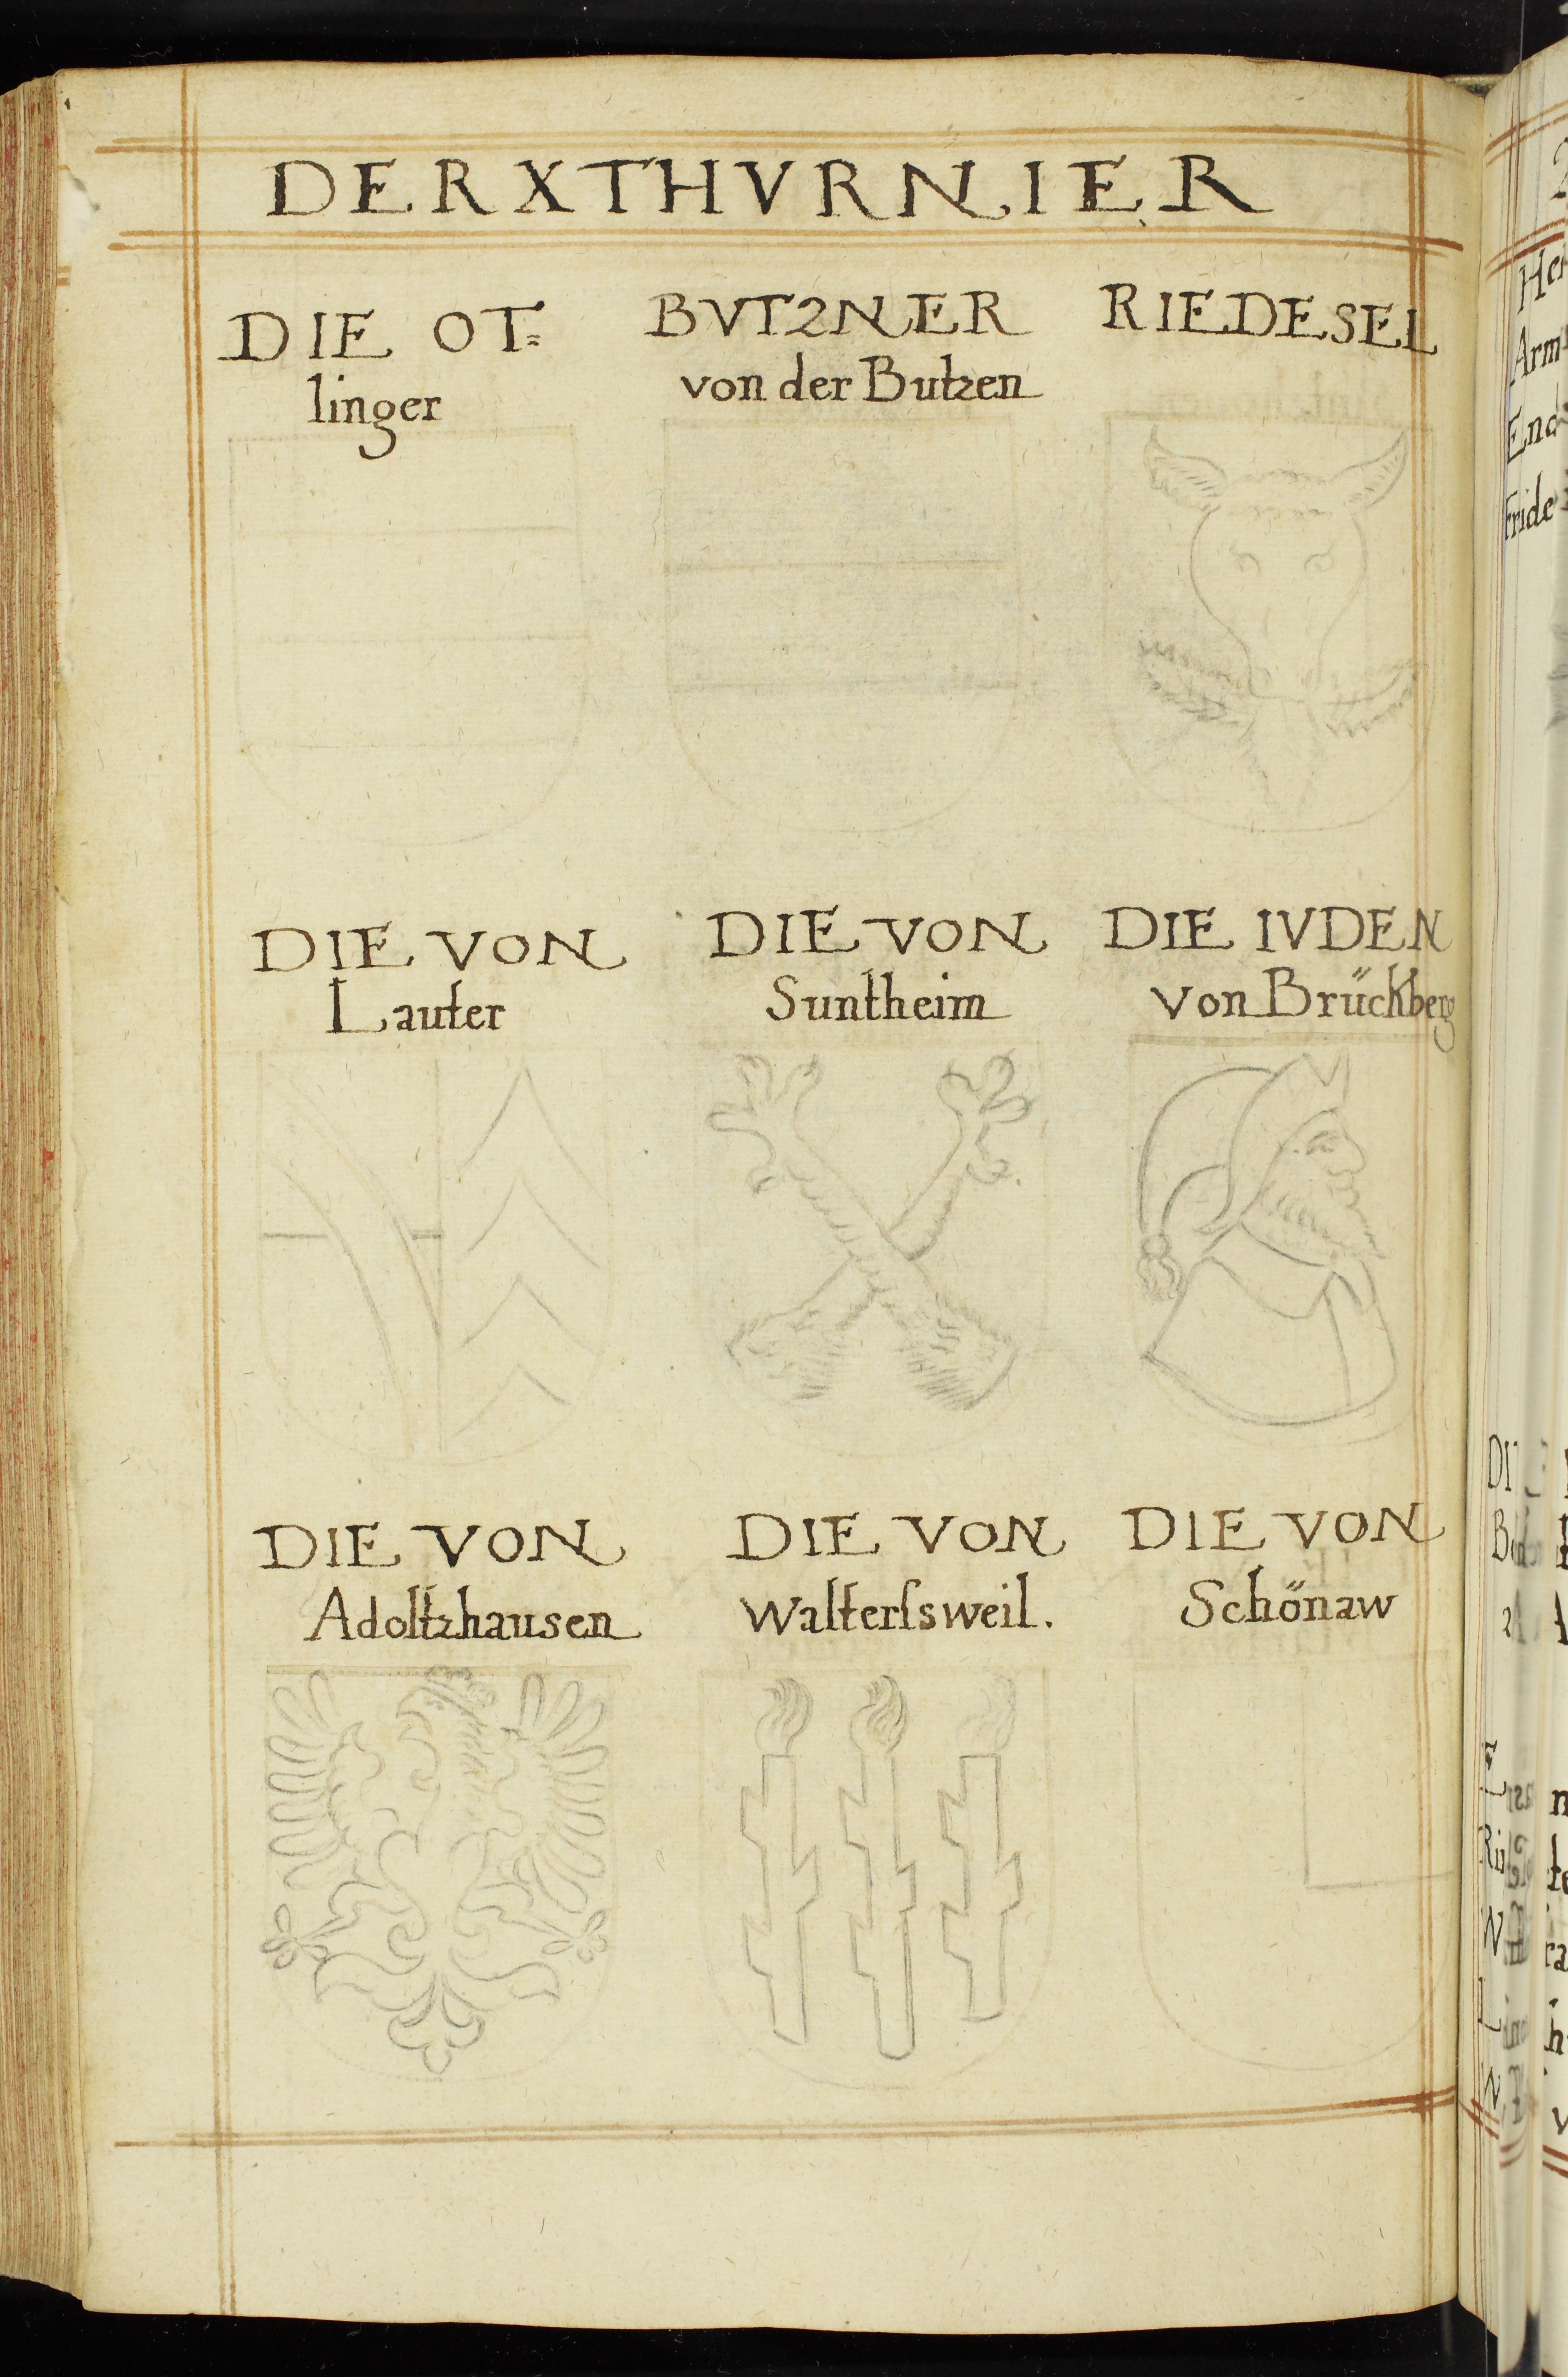 DER X THVRNIER
DIE OT=
linger
BVTZNER
von der Butzen
RIEDESEL
DIE VON
Lauter
DIE VON
Suntheim
DIE IVDEN
von Brückberg
DIE VON
Adoltzhausen
DIE VON
Walterſsweil.
DIE VON
Schönaw